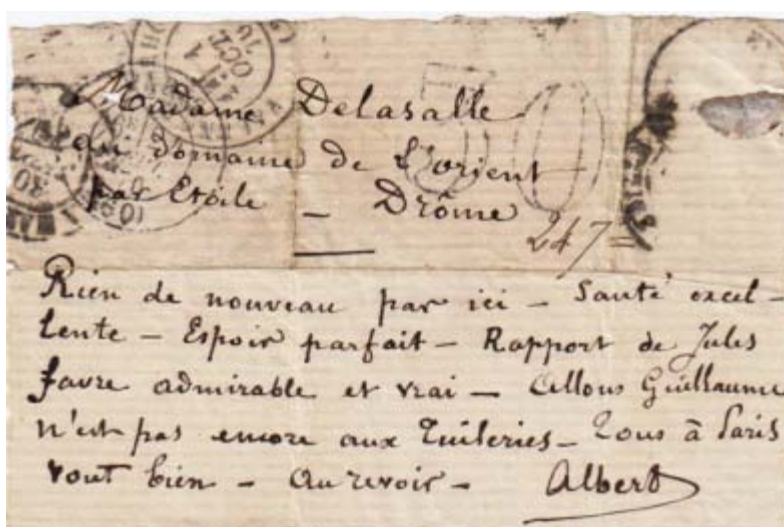 Madame Delasalle
au Domaine de L'orient
par Etoile _ Drôme
247
Rien de nouveau par ici _ Santé excel-
lente _ Espoir parfait _ Rapport de Jules
favre admirable et vrai _ Allons Guillaume
n'est pas encore aux Tuileries _ Tous à Paris
vont bien _ Au revoir _ Albert